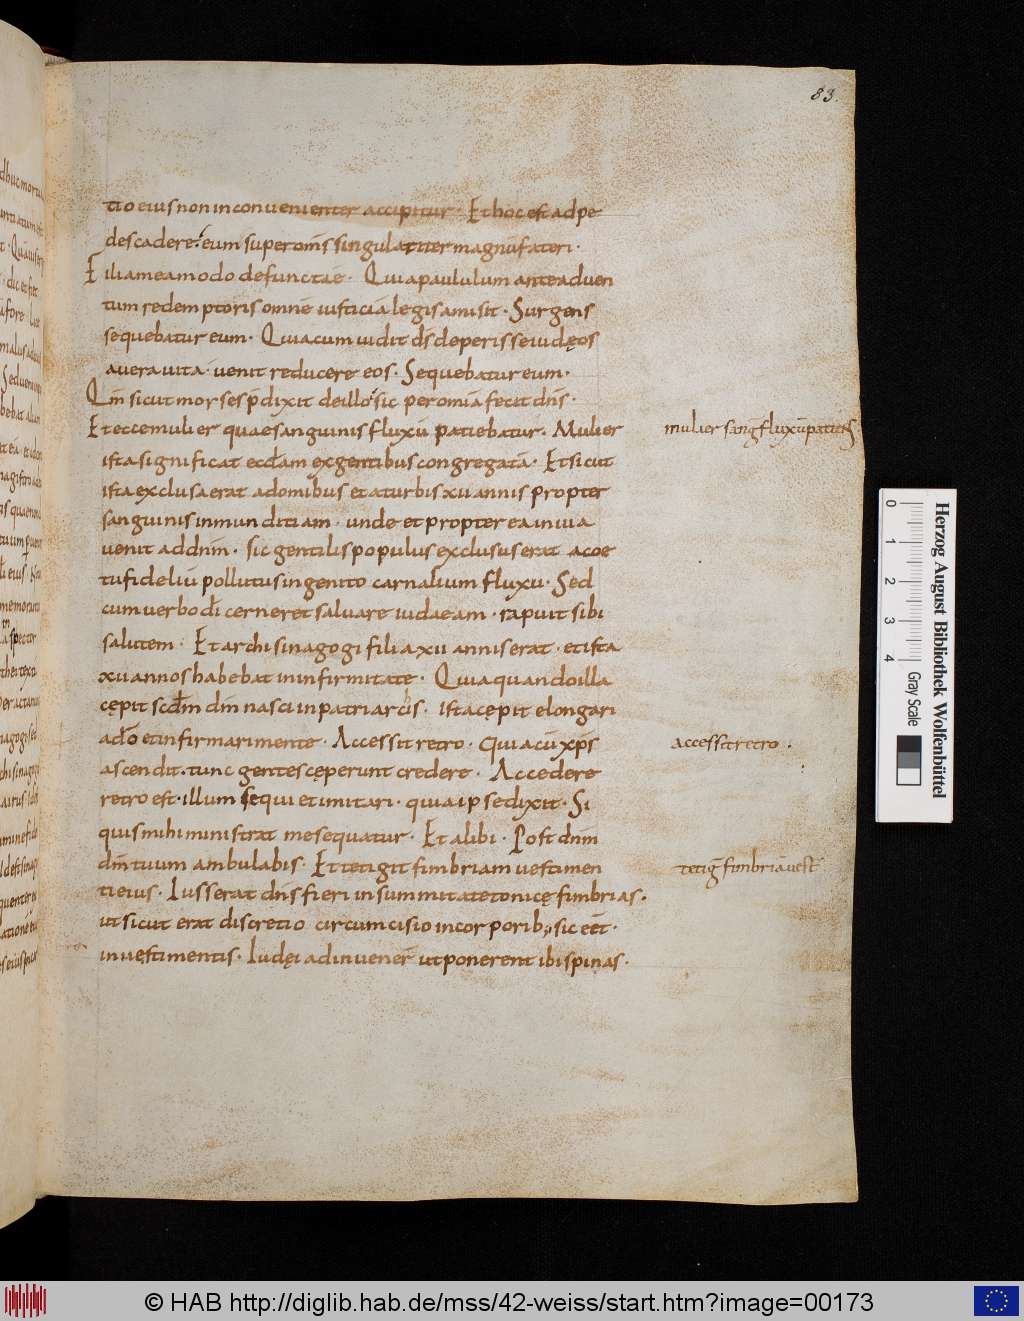 83.
tio eius non inconvenienter accipitur · Et hoc est ad pe
des cadere · eum super om̄s singulariter magnū fateri ·
Filia mea modo defuncta ē · Quia paululum ante adven
tum redemptoris omnē iusticiā legis amisit · Surgens
sequebatur eum · Quia cum vidit d̄s deperisse iudęos
a vera vita · venit reducere eos · Sequebatur eum ·
Qm̄ sicut morses p̄dixit de illo · sic per omnia fecit dn̄s ·
Et ecce mulier quae sanguinis fluxū patiebatur · Mulier
ista significat eccl̄am ex gentibus congregatā · Et sicut
ista exclusa erat a domibus et a turbis xii annis propter
sanguinis inmunditiam · unde et propterea in via
venit ad dn̄m · sic gentilis populus exclusus erat a coe
tu fideliū pollutus ingenito carnalium fluxu · Sed
cum verbo dī cerneret salvare iudaeam · rapuit sibi
salutem · Et archisinagogi filia xii annis erat · et ista
xii annos habebat in infirmitate · Quia quando illa
cępit scd̄m dm̄ nasci in patriarcis · ista cępit elongari
a dō et infirmari mente · Accessit retro · Quia cū xp̄s
ascendit · tunc gentes cęperunt credere · Accedere
retro est · illum sequi et imitari · quia ipse dixit · Si
quis mihi ministrat me sequatur · Et alibi · Post dn̄m
dm̄ tuum ambulabis · Et tetigit fimbriam vestimen
ti eius · Iusserat dn̄s fieri in summitate tonicę fimbrias ·
ut sicut erat discretio circumcisio in corporib; sic eēt ·
in vestimentis · Iudęi adinvener̄ ut ponerent ibi spinas ·
mulier sang̅ fluxū patiens
accessit retro ·
tetig̅ fimbriā vest̅
0 1 2 3 4
Gray Scale
Herzog August Bibliothek Wolfenbüttel
© HAB http://diglib.hab.de/mss/42-weiss/start.htm?image=00173